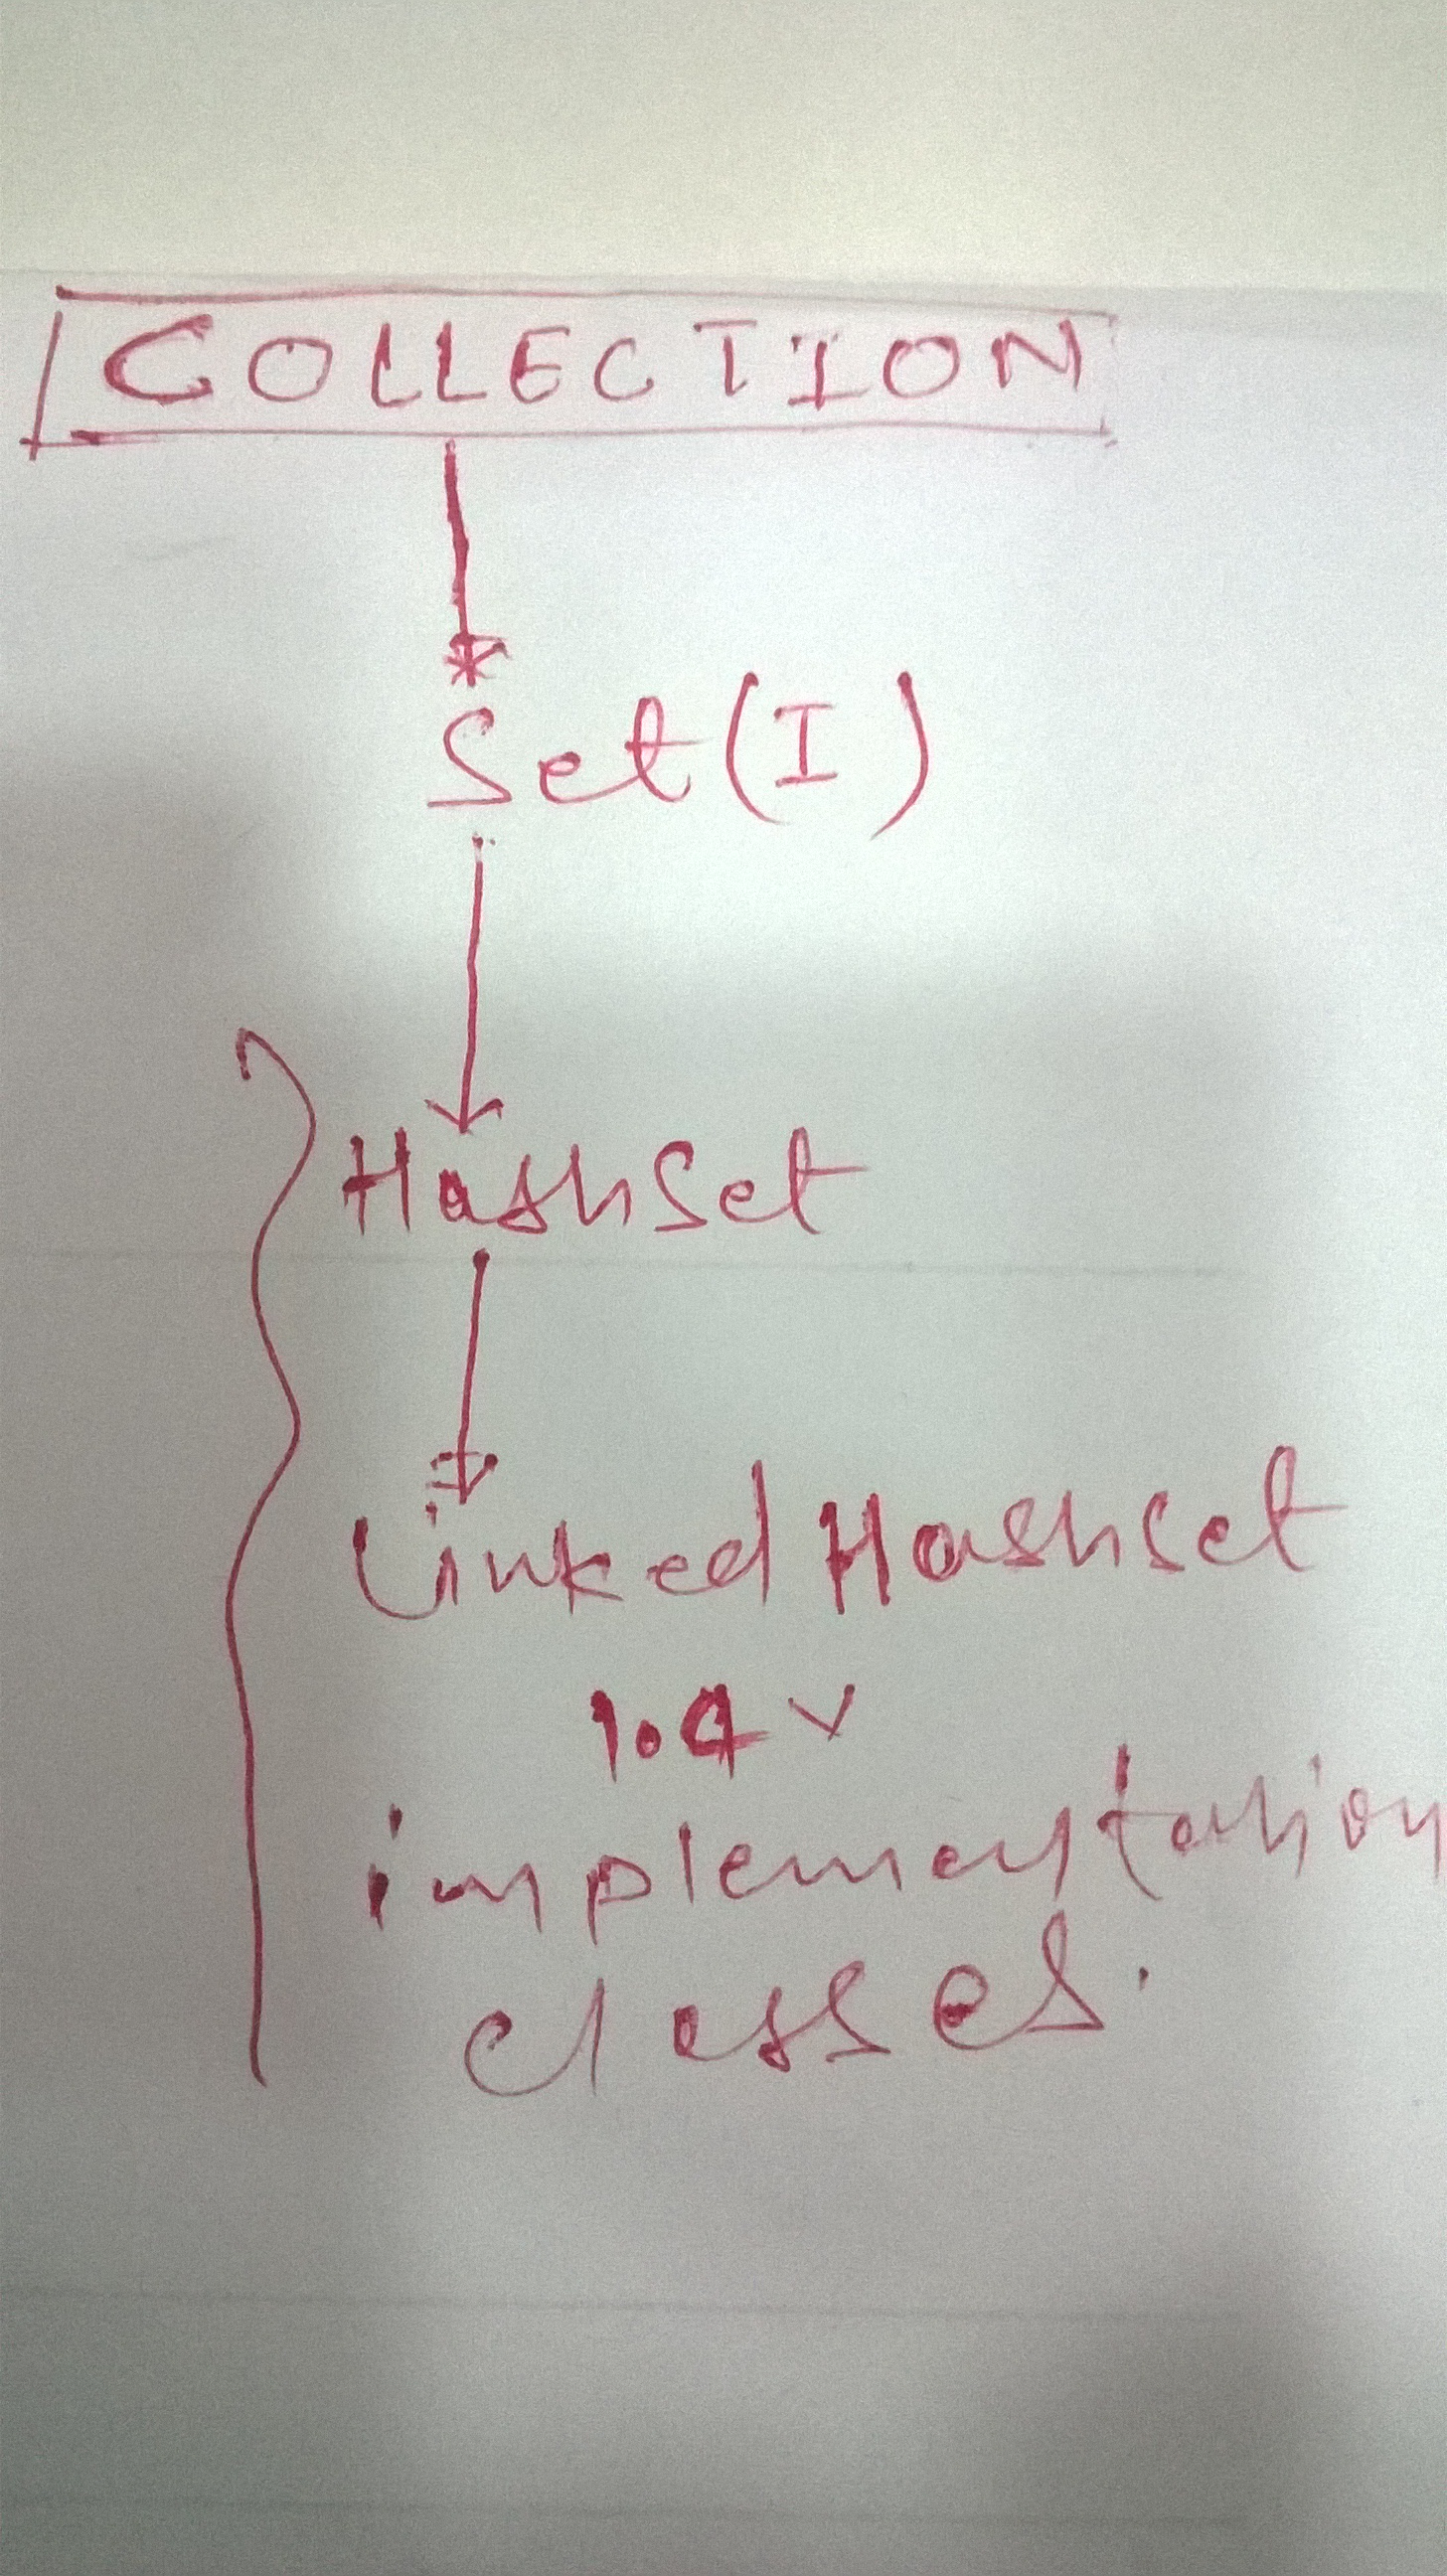 COLLECTION
Set(I)
HashSet
Linked Hashset
1.4 v
implementation
classes.